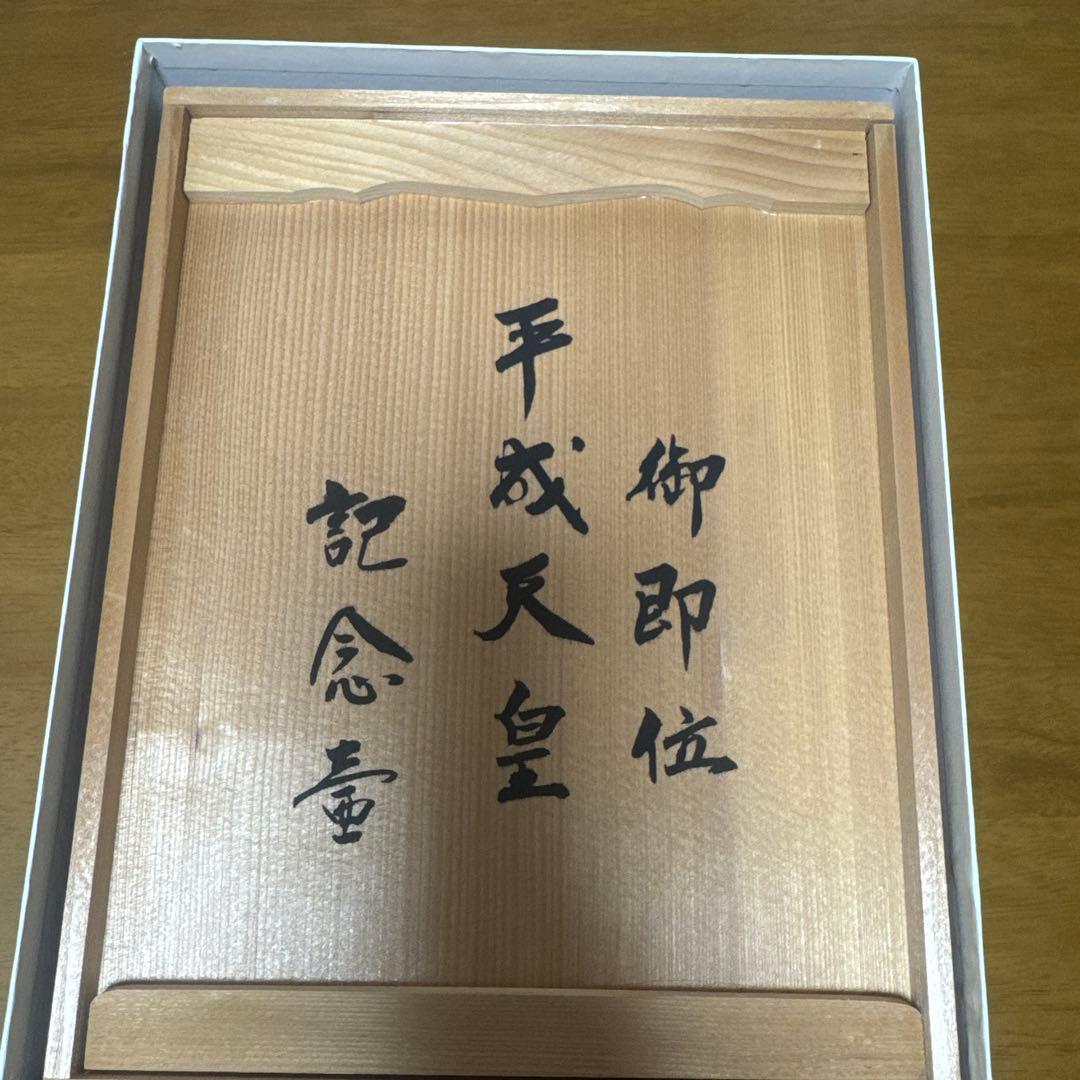 御即位
平成天皇
記念壷